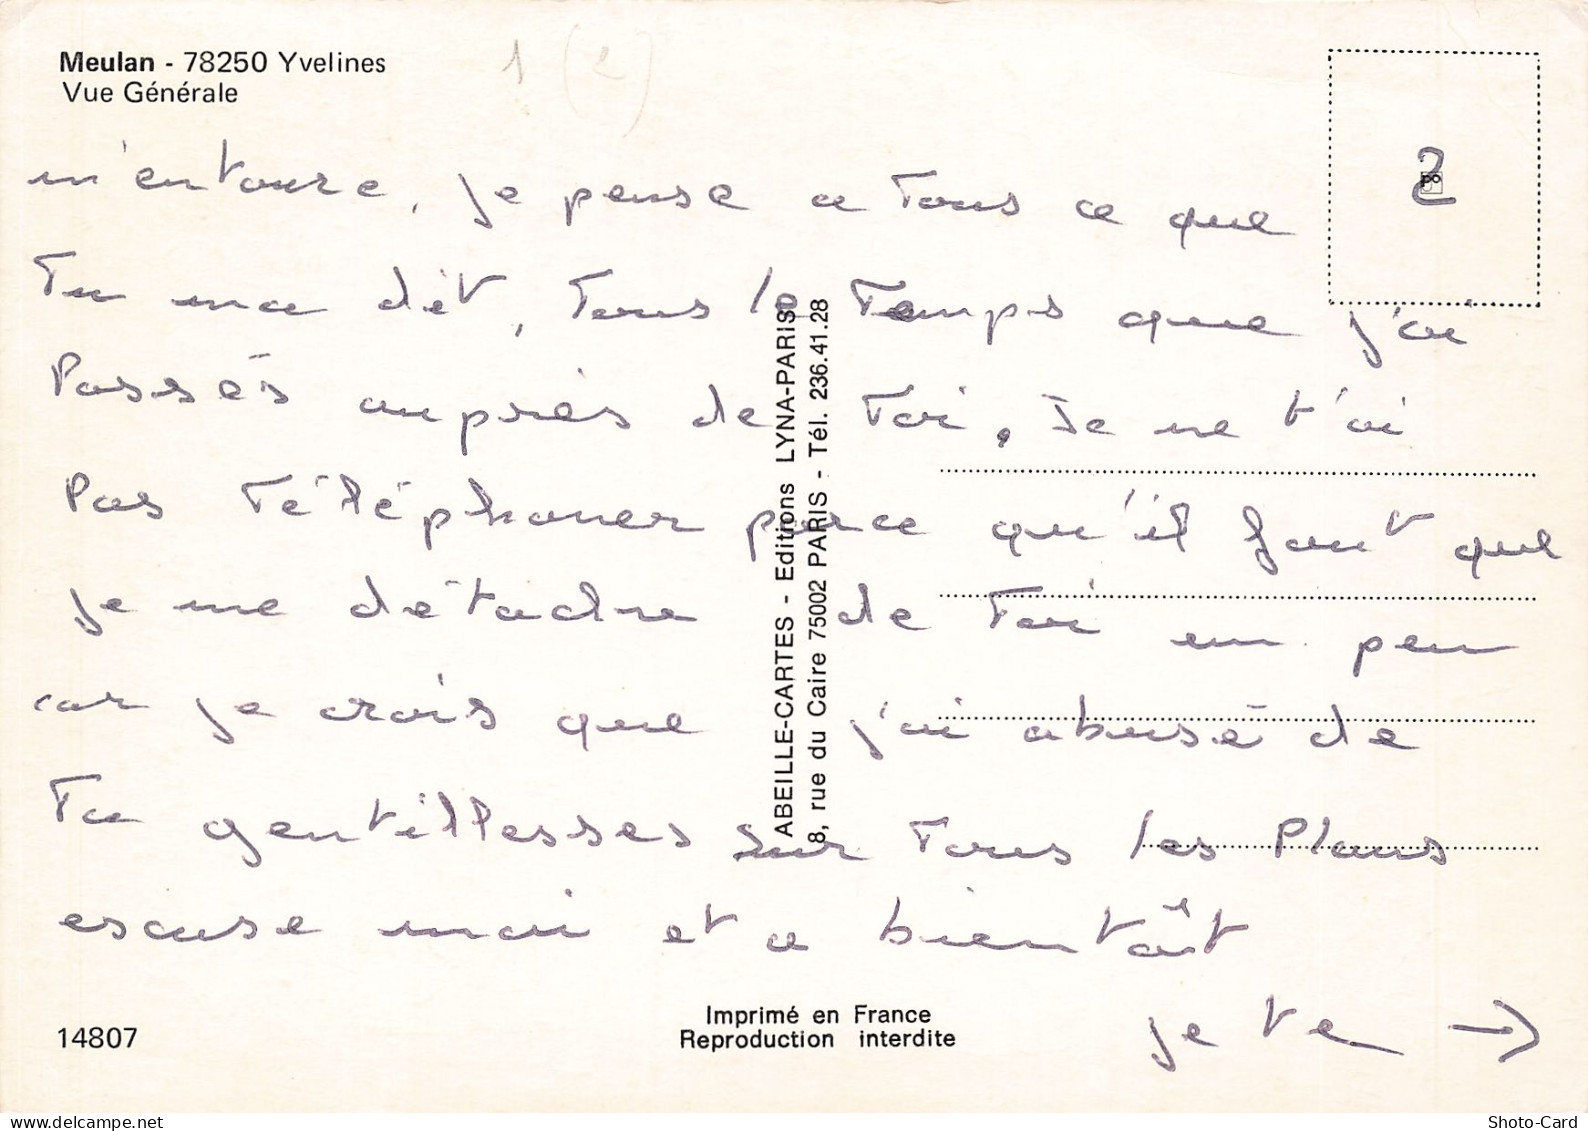 Meulan - 78250 Yvelines
Vue Générale
1 (2)
2
m'entoure, je pense a tous ce que
Tu ma dit, Tous le Temps que j'ai
Passés auprès de Toi, Je ne t'ai
Pas Téléphoner parce qu'il faut que
je me détache de Toi un peu
car je crois que j'ai abusé de
Ta gentillesses sur Tous les Plans
escuse moi et a bientôt
je te →
ABEILLE-CARTES - Editions LYNA-PARIS
8, rue du Caire 75002 PARIS - Tél. 236.41.28
14807
Imprimé en France
Reproduction interdite
Shoto-Card
www.delcampe.net